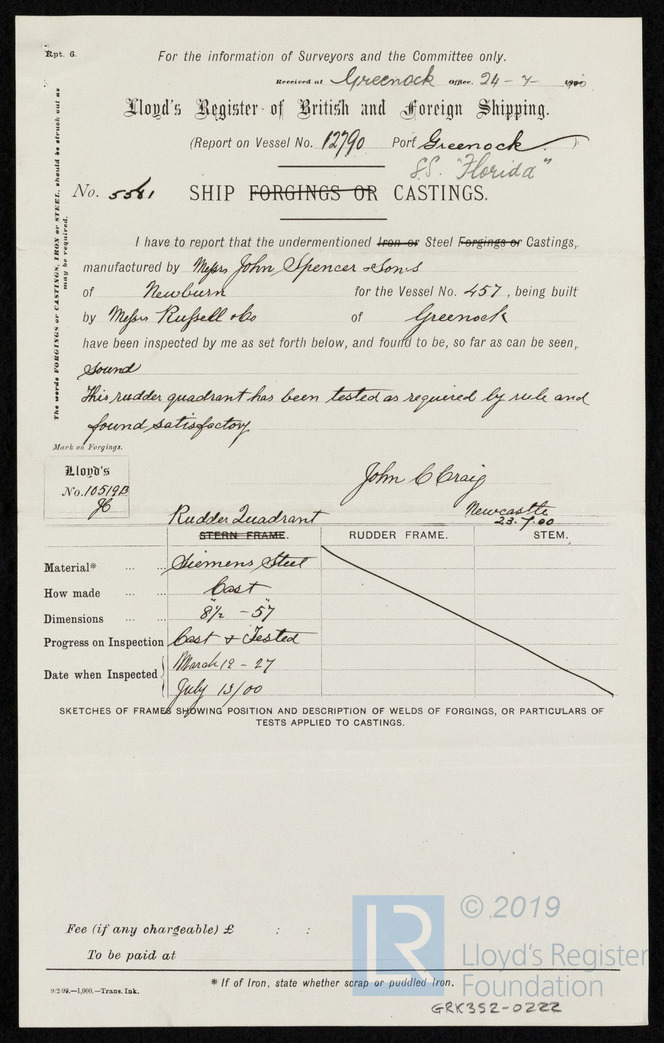 Rpt. 6.
For the information of Surveyors and the Committee only.
Received at Greenock Office. 24 - 7 - 1900
Lloyd's Register of British and Foreign Shipping.
(Report on Vessel No. 12790 Port Greenock )
S.S. "Florida"
No. 5581 SHIP FORGINGS OR CASTINGS.
The words FORGINGS or CASTINGS, IRON or STEEL, should be struck out as
may be required.
I have to report that the undermentioned Iron or Steel Forgings or Castings,
manufactured by Messrs John Spencer & Sons
of Newburn for the Vessel No. 457, being built
by Messrs Russell & Co of Greenock
have been inspected by me as set forth below, and found to be, so far as can be seen,
sound
This rudder quadrant has been tested as required by rule and
found satisfactory
Mark on Forgings.
Lloyd's
No. 10519B
JC
John C Craig
Newcastle
23.7.00
Rudder Quadrant
STERN FRAME. RUDDER FRAME. STEM.
Material* ... ... Siemens Steel
How made ... ... Cast
Dimensions ... ... 8½" - 57"
Progress on Inspection Cast & Tested
Date when Inspected March 12 - 27
July 13/00
SKETCHES OF FRAMES SHOWING POSITION AND DESCRIPTION OF WELDS OF FORGINGS, OR PARTICULARS OF
TESTS APPLIED TO CASTINGS.
Fee (if any chargeable) £ : :
To be paid at
* If of Iron, state whether scrap or puddled Iron.
9/2/99.—1,000.—Trans. Ink.
LR
© 2019
Lloyd's Register
Foundation
GRK352-0222